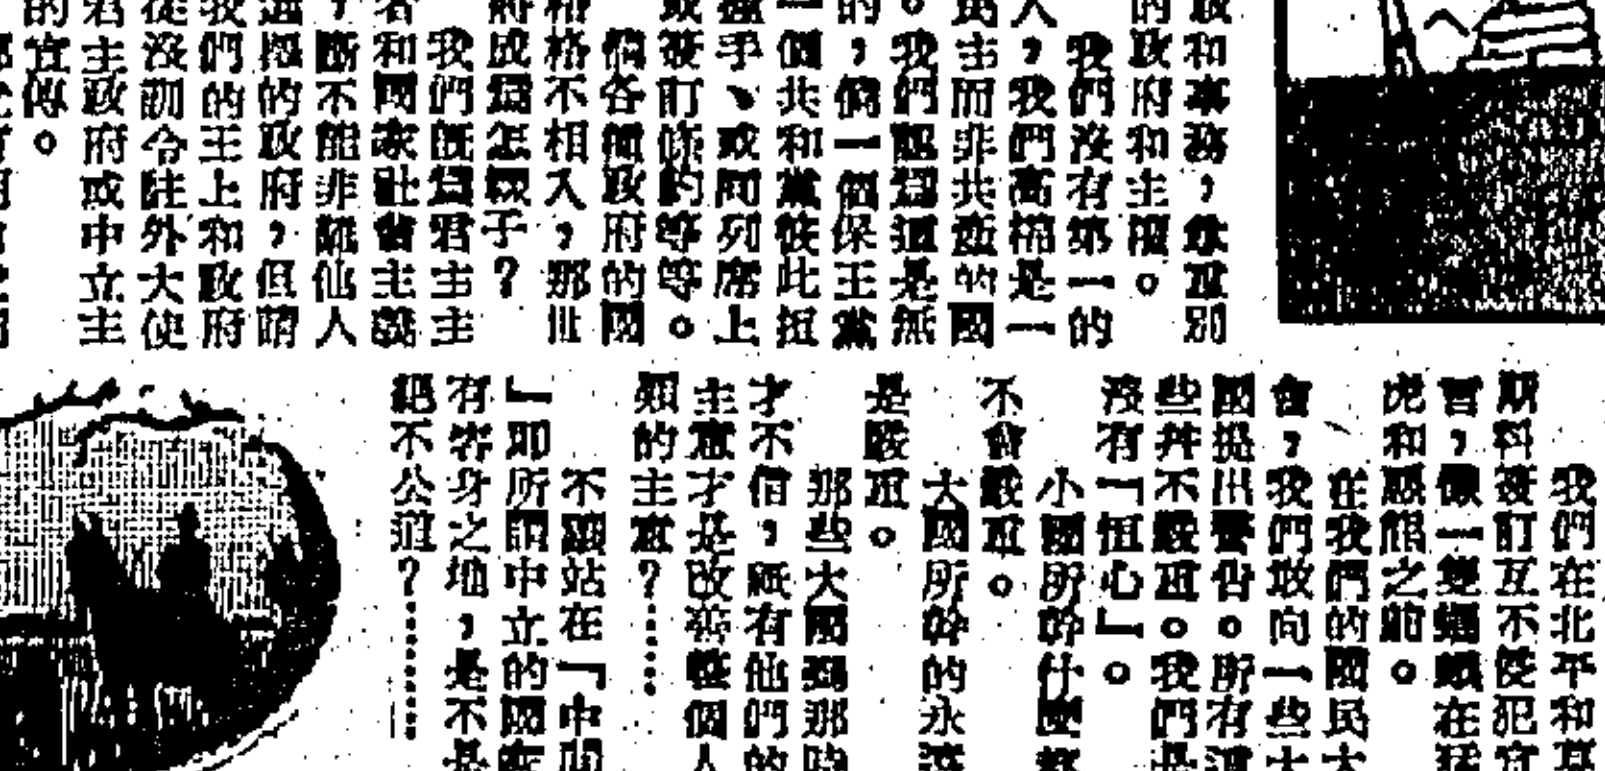 政和事務，尊重別
的政府和主權。
我們沒有第一的
人，我們高棉是一
民主而非共產的國
。我們認爲這是無
的，倘一個保王黨
一個共和黨彼此扭
握手、或同列席上
或簽訂條約等等。
倘各種政府的國
格格不相入，那世
將成爲怎樣子？
我們既爲君主主
者和國家社會主義
，斷不能非難他人
選擇的政府，但請
我們的王上和政府
從沒訓令駐外大使
君主政府或中立主
的宣傳。
我們在北平和莫
斯科簽訂互不侵犯宣
言，像一雙螞蟻在猛
虎和惡熊之前。
在我們的國民大
會，我們敢向一些大
國提出警告。所有這
些幷不嚴重。我們是
沒有「恒心」。
小國所幹什麼都
不會嚴重。
大國所幹的永遠
是嚴重。
那些大國到那時
才不信，祇有他們的
主意才是改善整個人
類的主意？……
不願站在「中間
」即所謂中立的國家
有容身之地，是不是
絕不公道？………